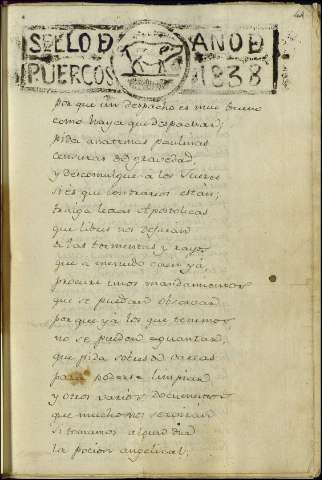 SELLO D AÑO D
PUERCOS 1838
porque un despacho es muy bueno
como haya que despachar;
pida anatemas paulinas
censuras de gravedad
y descomulgue a los
si es que contrarios están;
traiga letras Apostolicas
que libres nos dejarán
de las tormentas y rayos
que a menudo caen yá,
procure unos mandamientos
que se puedan observar
porque yá los que tenemos
no se pueden aguantar,
que pida de varas
para poderse limpiar
y otros varios documentos
que mucho nos servirán
si tomamos algun dia
la pocion angelical;